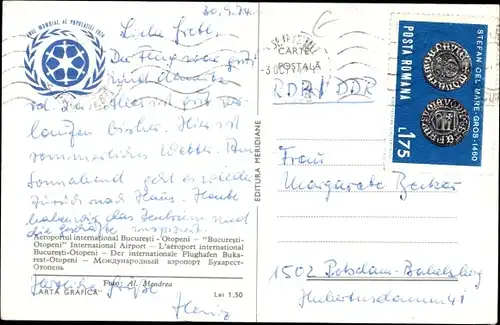 30.9.74
ANUL MONDIAL AL POPULAȚIEI 1974
Liebe Grete,
Der Flug war
Hier ist gut ver-
laufen bisher. Hier ist
sommerliches Wetter. Am
Sonnabend geht es wieder
zurück nach Haus. Heute
haben wir das Zentrum und
die Geschäfte inspiziert.
Aeroportul internațional București - Otopeni — "București-
Otopeni" International Airport — L'aéroport international
București-Otopeni — Der internationale Flughafen Buka-
rest-Otopeni — Международный аэропорт Бухарест-
Отопень
Foto: Al. Mendrea
"ARTA GRAFICA"
Lei 1,50
Herzliche Grüße
Heinz
EDITURA MERIDIANE
CARTE
POSTALĂ
RDG / DDR
POSTA ROMANA L 1,75
STEFAN CEL MARE-GROS-1460
Frau
Margarete Becker
1502 Potsdam-Babelsberg
Hubertusdamm 41